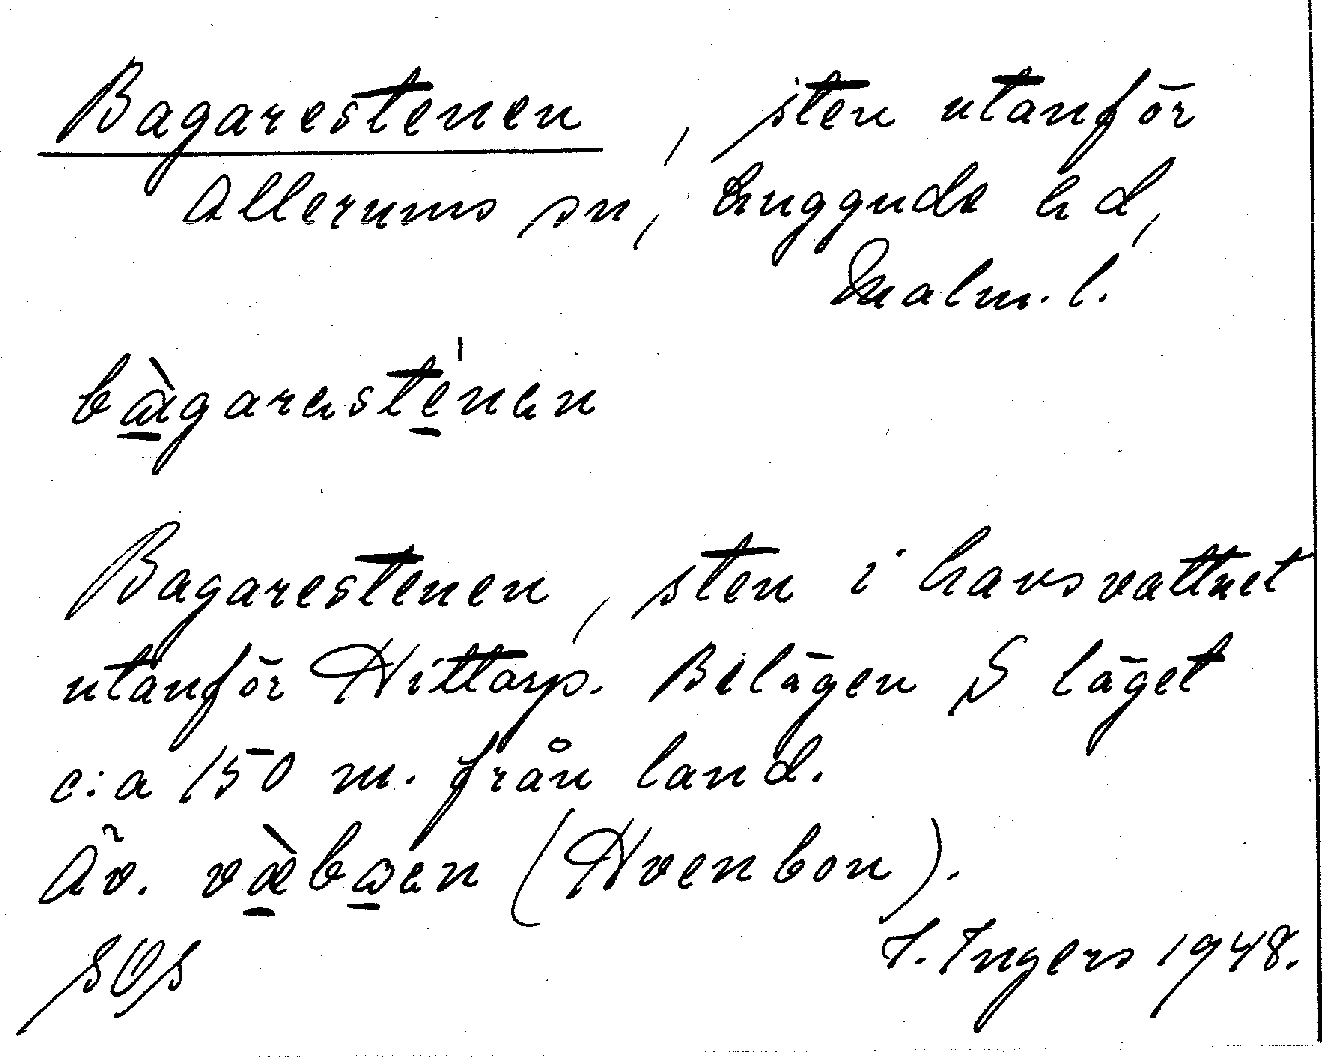 Bagarestenen, sten utanför
Allerums sn, Luggude hd,
Malm. l.
bàgarəste̍nən
Bagarestenen, sten i havsvattnet
utanför Hittarp. Belägen S läget
c:a 150 m. från land.
Äv. (Hvenbon).
SOS I. Ingers 1948.